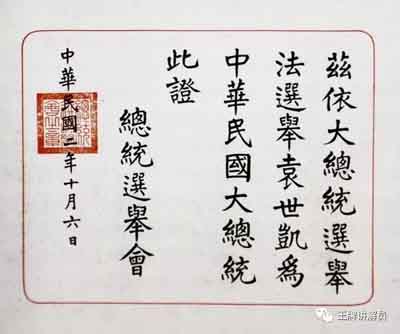 茲依大總統選舉
法選舉袁世凱為
中華民國大總統
此證
總統選舉會
中華民國二年十月六日
王牌讲解员